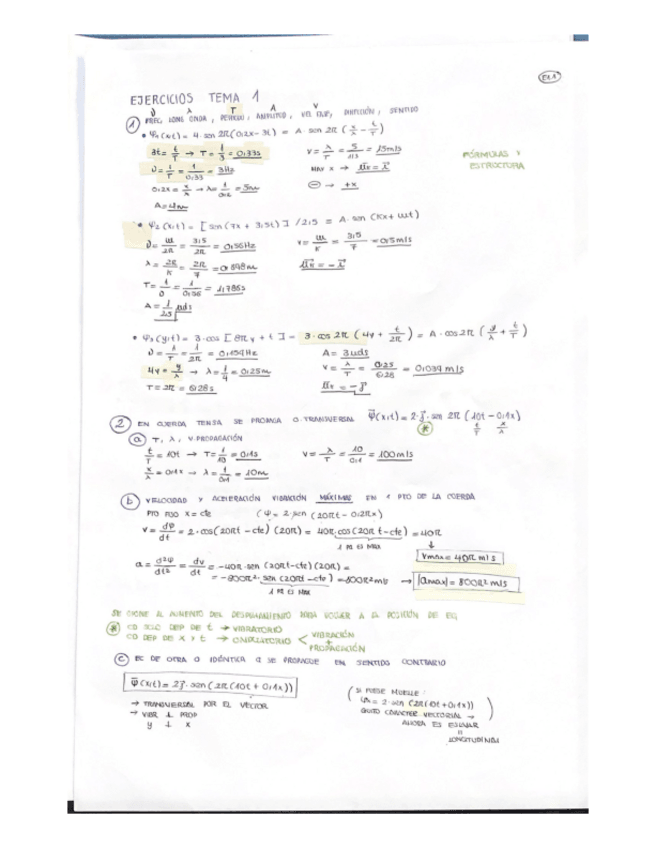 EJERCICIOS TEMA 1
ν λ T A V
① FREC, LONG ONDA, PERIODO, AMPLITUD, VEL, DIRECCIÓN, SENTIDO
• Ψ₁(x,t) = 4·sen 2π(0,2x - 3t) = A·sen 2π (x/λ - t/T)
3t = t/T → T = 1/3 = 0,33s
V = λ/T = 5/0,33 = 15m/s
FÓRMULAS Y ESTRUCTURA
ν = 1/T = 1/0,33 = 3Hz
0,2x = x/λ → λ = 1/0,2 = 5m
⊖ → +x
A = 4m
• Ψ₂(x,t) = [sen (7x + 3,5t)] / 2,5 = A·sen (Kx + ωt)
ν = ω/2π = 3,5/2π = 0,56Hz
v = ω/K = 3,5/7 = 0,5m/s
λ = 2π/K = 2π/7 = 0,898m
T = 1/ν = 1/0,56 = 1,785s
A = 1/2,5 uds
• Ψ₃(y,t) = 3·cos [8πy + t] = 3·cos 2π (4y + t/2π) = A·cos 2π (y/λ + t/T)
ν = 1/T = 1/2π = 0,159Hz
A = 3uds
4y = y/λ → λ = 1/4 = 0,25m
V = λ/T = 0,25/6,28 = 0,039 m/s
T = 2π = 6,28s
② EN CUERDA TENSA SE PROPAGA O. TRANSVERSAL φ(x,t) = 2·j·sen 2π (10t - 0,1x)
ⓐ T, λ, V·PROPAGACIÓN
t/T = 10t → T = 1/10 = 0,1s
V = λ/T = 10/0,1 = 100m/s
x/λ = 0,1x → λ = 1/0,1 = 10m
ⓑ VELOCIDAD Y ACELERACIÓN VIBRACIÓN MÁXIMAS EN 1 PTO DE LA CUERDA
PTO FIJO X = cte (φ = 2·sen (20πt - 0,2πx)
V = dφ/dt = 2·cos(20πt - cte)(20π) = 40π·cos(20πt - cte) = 40π
Vmax = 40π m/s
a = d²φ/dt² = dv/dt = -40π·sen (20πt - cte)(20π) =
= -800π²·sen (20πt - cte) = 800π² m/s → |amax| = 800π² m/s
SE OPONE AL AUMENTO DEL DESPLAZAMIENTO PARA LLEGAR A LA POSICIÓN DE EQ
CD SOLO DEP DE t → VIBRATORIO
CD DEP DE X Y t → ONDULATORIO < VIBRACIÓN + PROPAGACIÓN
ⓒ EC DE OTRA O IDÉNTICA Q SE PROPAGUE EN SENTIDO CONTRARIO
φ(x,t) = 2j·sen (2π(10t + 0,1x))
→ TRANSVERSAL POR EL VECTOR
→ VIBR ⊥ PROP
y ⊥ x
(SI FUESE MUELLE:
φ = 2·sen (2π(10t + 0,1x))
QUITO CARÁCTER VECTORIAL →
AHORA ES ESCALAR
LONGITUDINAL